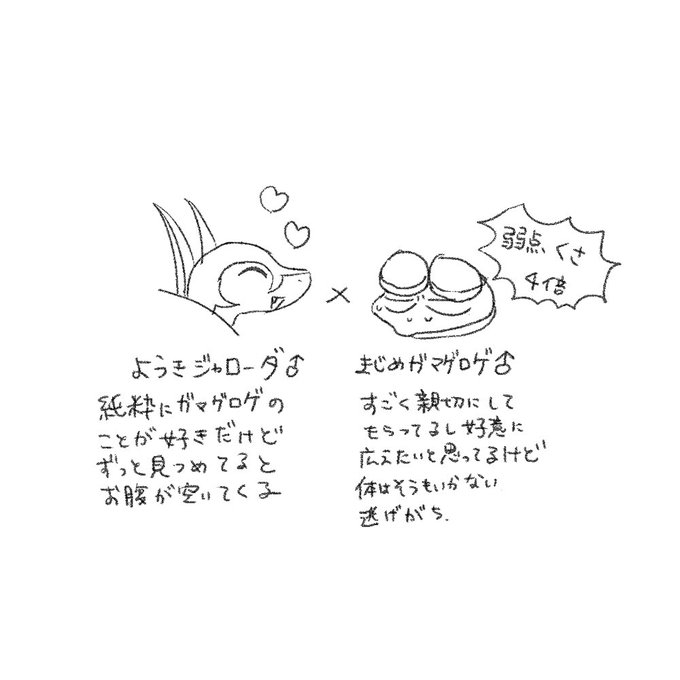 弱点 くさ
4倍
×
ようきジャローダ♂
純粋にガマゲロゲの
ことが好きだけど
ずっと見つめてると
お腹が空いてくる
まじめガマゲロゲ♂
すごく親切にして
もらってるし好意に
応えたいと思ってるけど
体はそうもいかない
逃げがち.